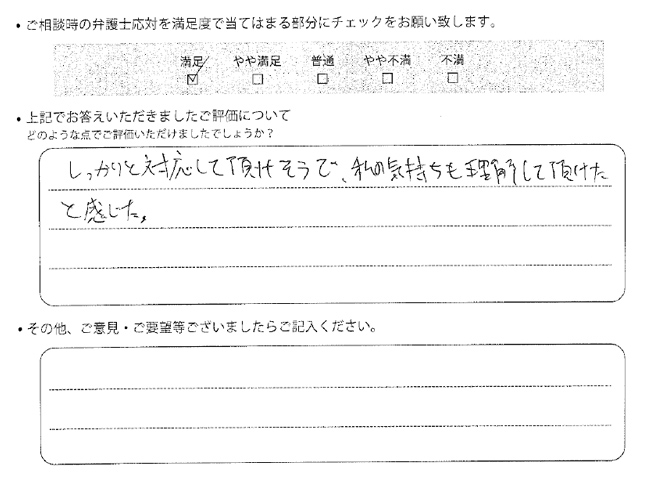 ・ご相談時の弁護士応対を満足度で当てはまる部分にチェックをお願い致します。
満足 やや満足 普通 やや不満 不満
☑ □ □ □ □
・上記でお答えいただきましたご評価について
どのような点でご評価いただけましたでしょうか？
しっかりと対応して頂けそうで、私の気持ちも理解して頂けた
と感じた。
・その他、ご意見・ご要望等ございましたらご記入ください。